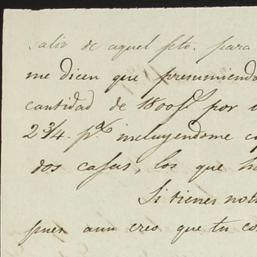 salir de aquel pto. para
me dicen que presumiendo
cantidad de 1800 f por
2 3/4 p% incluyendome
dos casas, los que
Si tienes
pues aun creo que tu